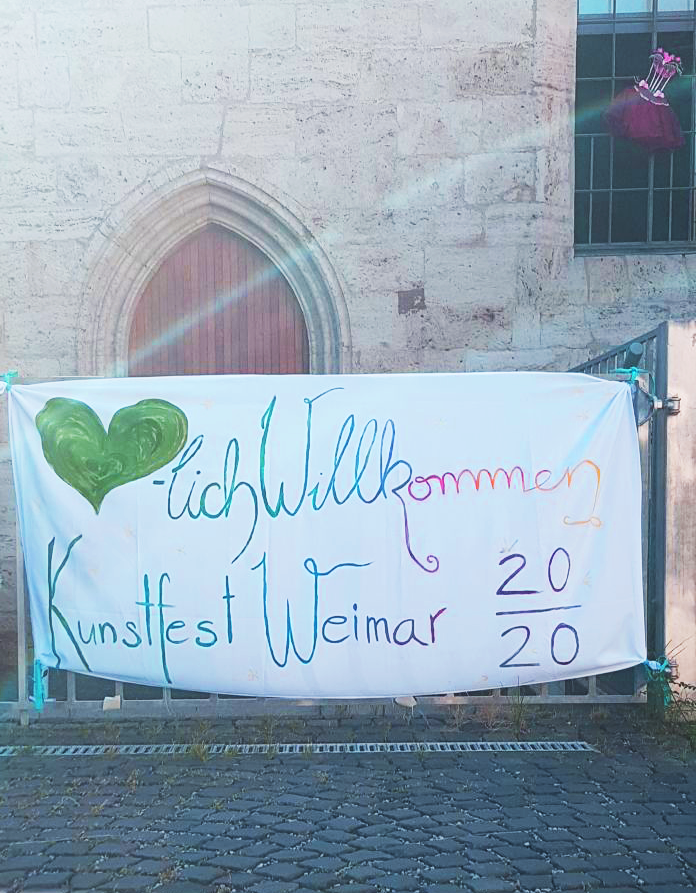 -lich Willkommen
Kunstfest Weimar 20
20